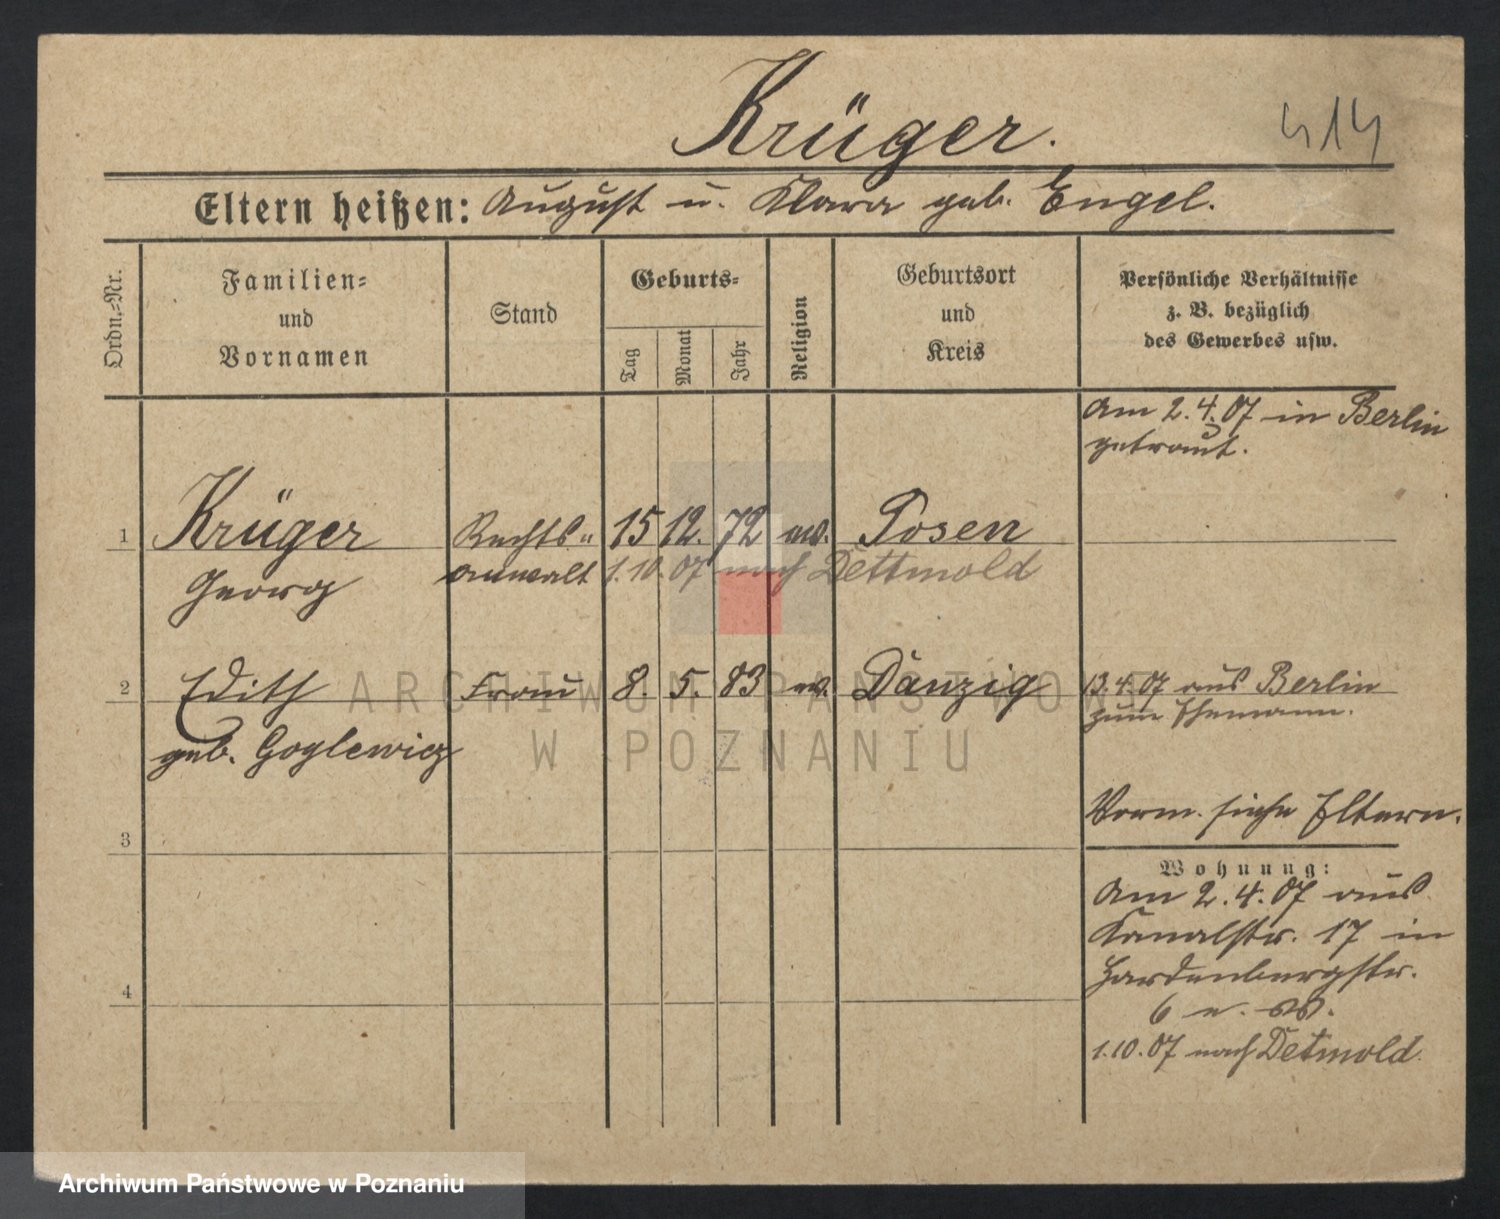 Krüger.
414
Eltern heißen: August u. Klara geb. Engel.
Ordn.-Nr.
Familien-
und
Vornamen
Stand
Geburts-
Tag
Monat
Jahr
Religion
Geburtsort
und
Kreis
Persönliche Verhältnisse
z. B. bezüglich
des Gewerbes usw.
Am 2.4.07 in Berlin
getraut.
1 Krüger Rechts- 15 12. 72 ev. Posen
Georg anwalt 1.10.07 nach Dettmold
2 Edith Frau 8. 5. 83 ev. Danzig 13.4.07 aus Berlin
zum Ehemann.
geb. Goglewicz
Vorm. siehe Eltern.
3
Wohnung:
Am 2.4.07 aus
Kanalstr. 17 in
Hardenbergstr.
4
6
1.10.07 nach Detmold.
ARCHIWUM PAŃSTWOWE
W POZNANIU
Archiwum Państwowe w Poznaniu